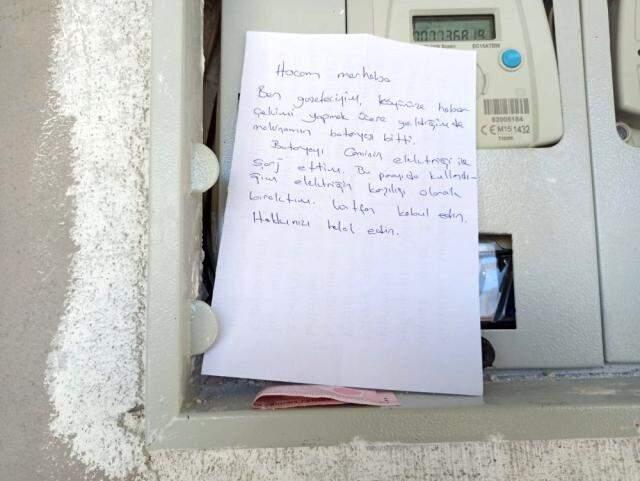 Hocam merhaba
Ben gazeteciyim, köyünüze haber
çekimi yapmak üzere geldiğimde
makinamın bataryası bitti.
Bataryayı Caminin elektriği ile
şarj ettim. Bu parayıda kullandı-
ğım elektriğin karşılığı olarak
bıraktım. Lütfen kabul edin.
Hakkınızı helal edin.
EC15ATBW
82005184
CE M15 1432